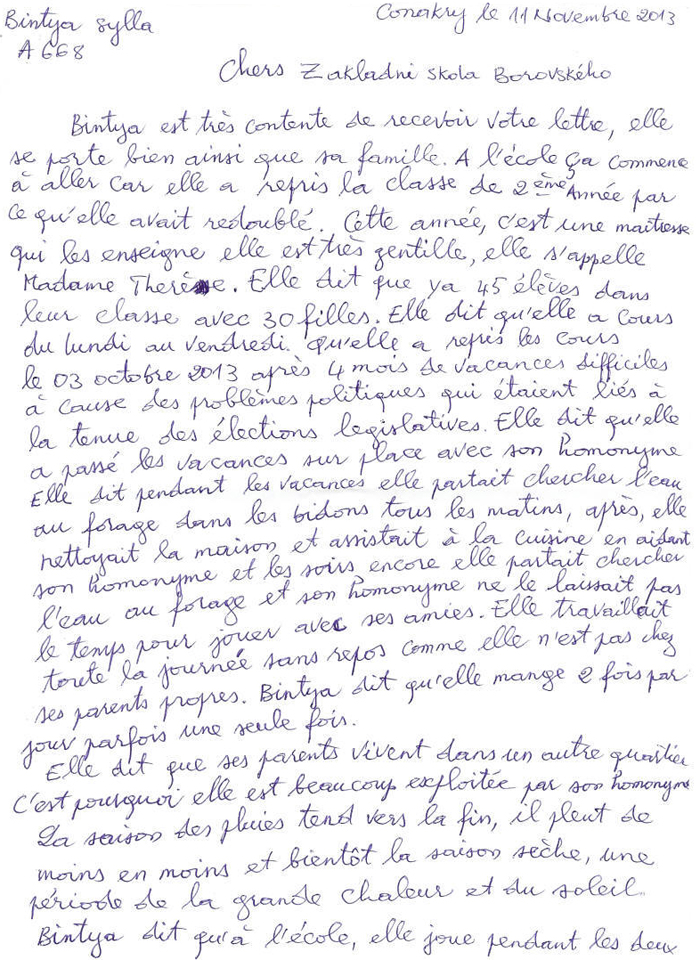 Bintya Sylla
A 668
Conakry le 11 Novembre 2013
Chers Zakladni skola Borovského
Bintya est très contente de recevoir votre lettre, elle
se porte bien ainsi que sa famille. A l'école ça commence
à aller car elle a repris la classe de 2ème Année par
ce qu'elle avait redoublé. Cette année, c'est une maitresse
qui les enseigne elle est très gentille, elle s'appelle
Madame Therèse. Elle dit que ya 45 élèves dans
leur classe avec 30 filles. Elle dit qu'elle a cours
du lundi au vendredi. qu'elle a repris les cours
le 03 octobre 2013 après 4 mois de vacances difficiles
à cause des problèmes politiques qui étaient liés à
la tenue des élections legislatives. Elle dit qu'elle
a passé les vacances sur place avec son homonyme
Elle dit pendant les vacances elle partait chercher l'eau
au forage dans les bidons tous les matins, après, elle
nettoyait la maison et assistait à la cuisine en aidant
son homonyme et les soirs encore elle partait chercher
l'eau au forage et son homonyme ne le laissait pas
le temps pour jouer avec ses amies. Elle travaillait
toute la journée sans repos comme elle n'est pas chez
ses parents propres. Bintya dit qu'elle mange 2 fois par
jour parfois une seule fois.
Elle dit que ses parents vivent dans un autre quartier
C'est pourquoi elle est beaucoup exploitée par son homonyme
La saison des pluies tend vers la fin, il pleut de
moins en moins et bientôt la saison sèche, une
période de la grande chaleur et du soleil.
Bintya dit qu'à l'école, elle joue pendant les deux